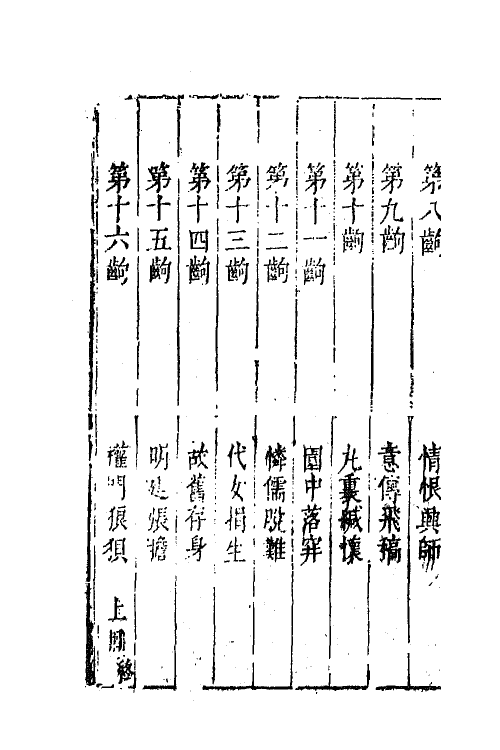 第八齣 情恨興師
第九齣 意傳飛稿
第十齣 丸裏緘懷
第十一齣 園中落穽
第十二齣 憐儒脫難
第十三齣 代女捐生
第十四齣 故舊存身
第十五齣 明廷張膽
第十六齣 權門狼狽 上冊終